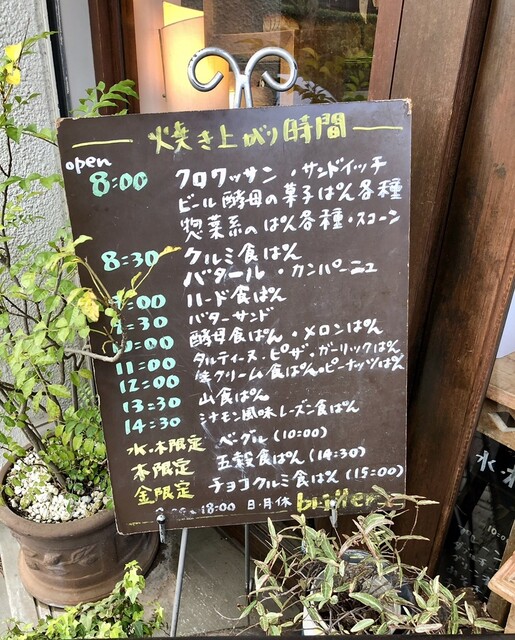 焼き上がり時間
open
8:00 クロワッサン・サンドイッチ
ビール酵母の菓子ぱん各種
惣菜系のぱん各種・スコーン
8:30 クルミ食ぱん
バタール・カンパーニュ
:00 ハード食ぱん
:30 バターサンド
:00 酵母食ぱん・メロンぱん
11:00 タルティーヌ・ピザ・ガーリックぱん
12:00 生クリーム食ぱん・ピーナッツぱん
13:30 山食ぱん
14:30 シナモン風味レーズン食ぱん
水・木限定 ベーグル(10:00)
木限定 五穀食ぱん(14:30)
金限定 チョコクルミ食ぱん(15:00)
18:00 日・月休
水
10:0